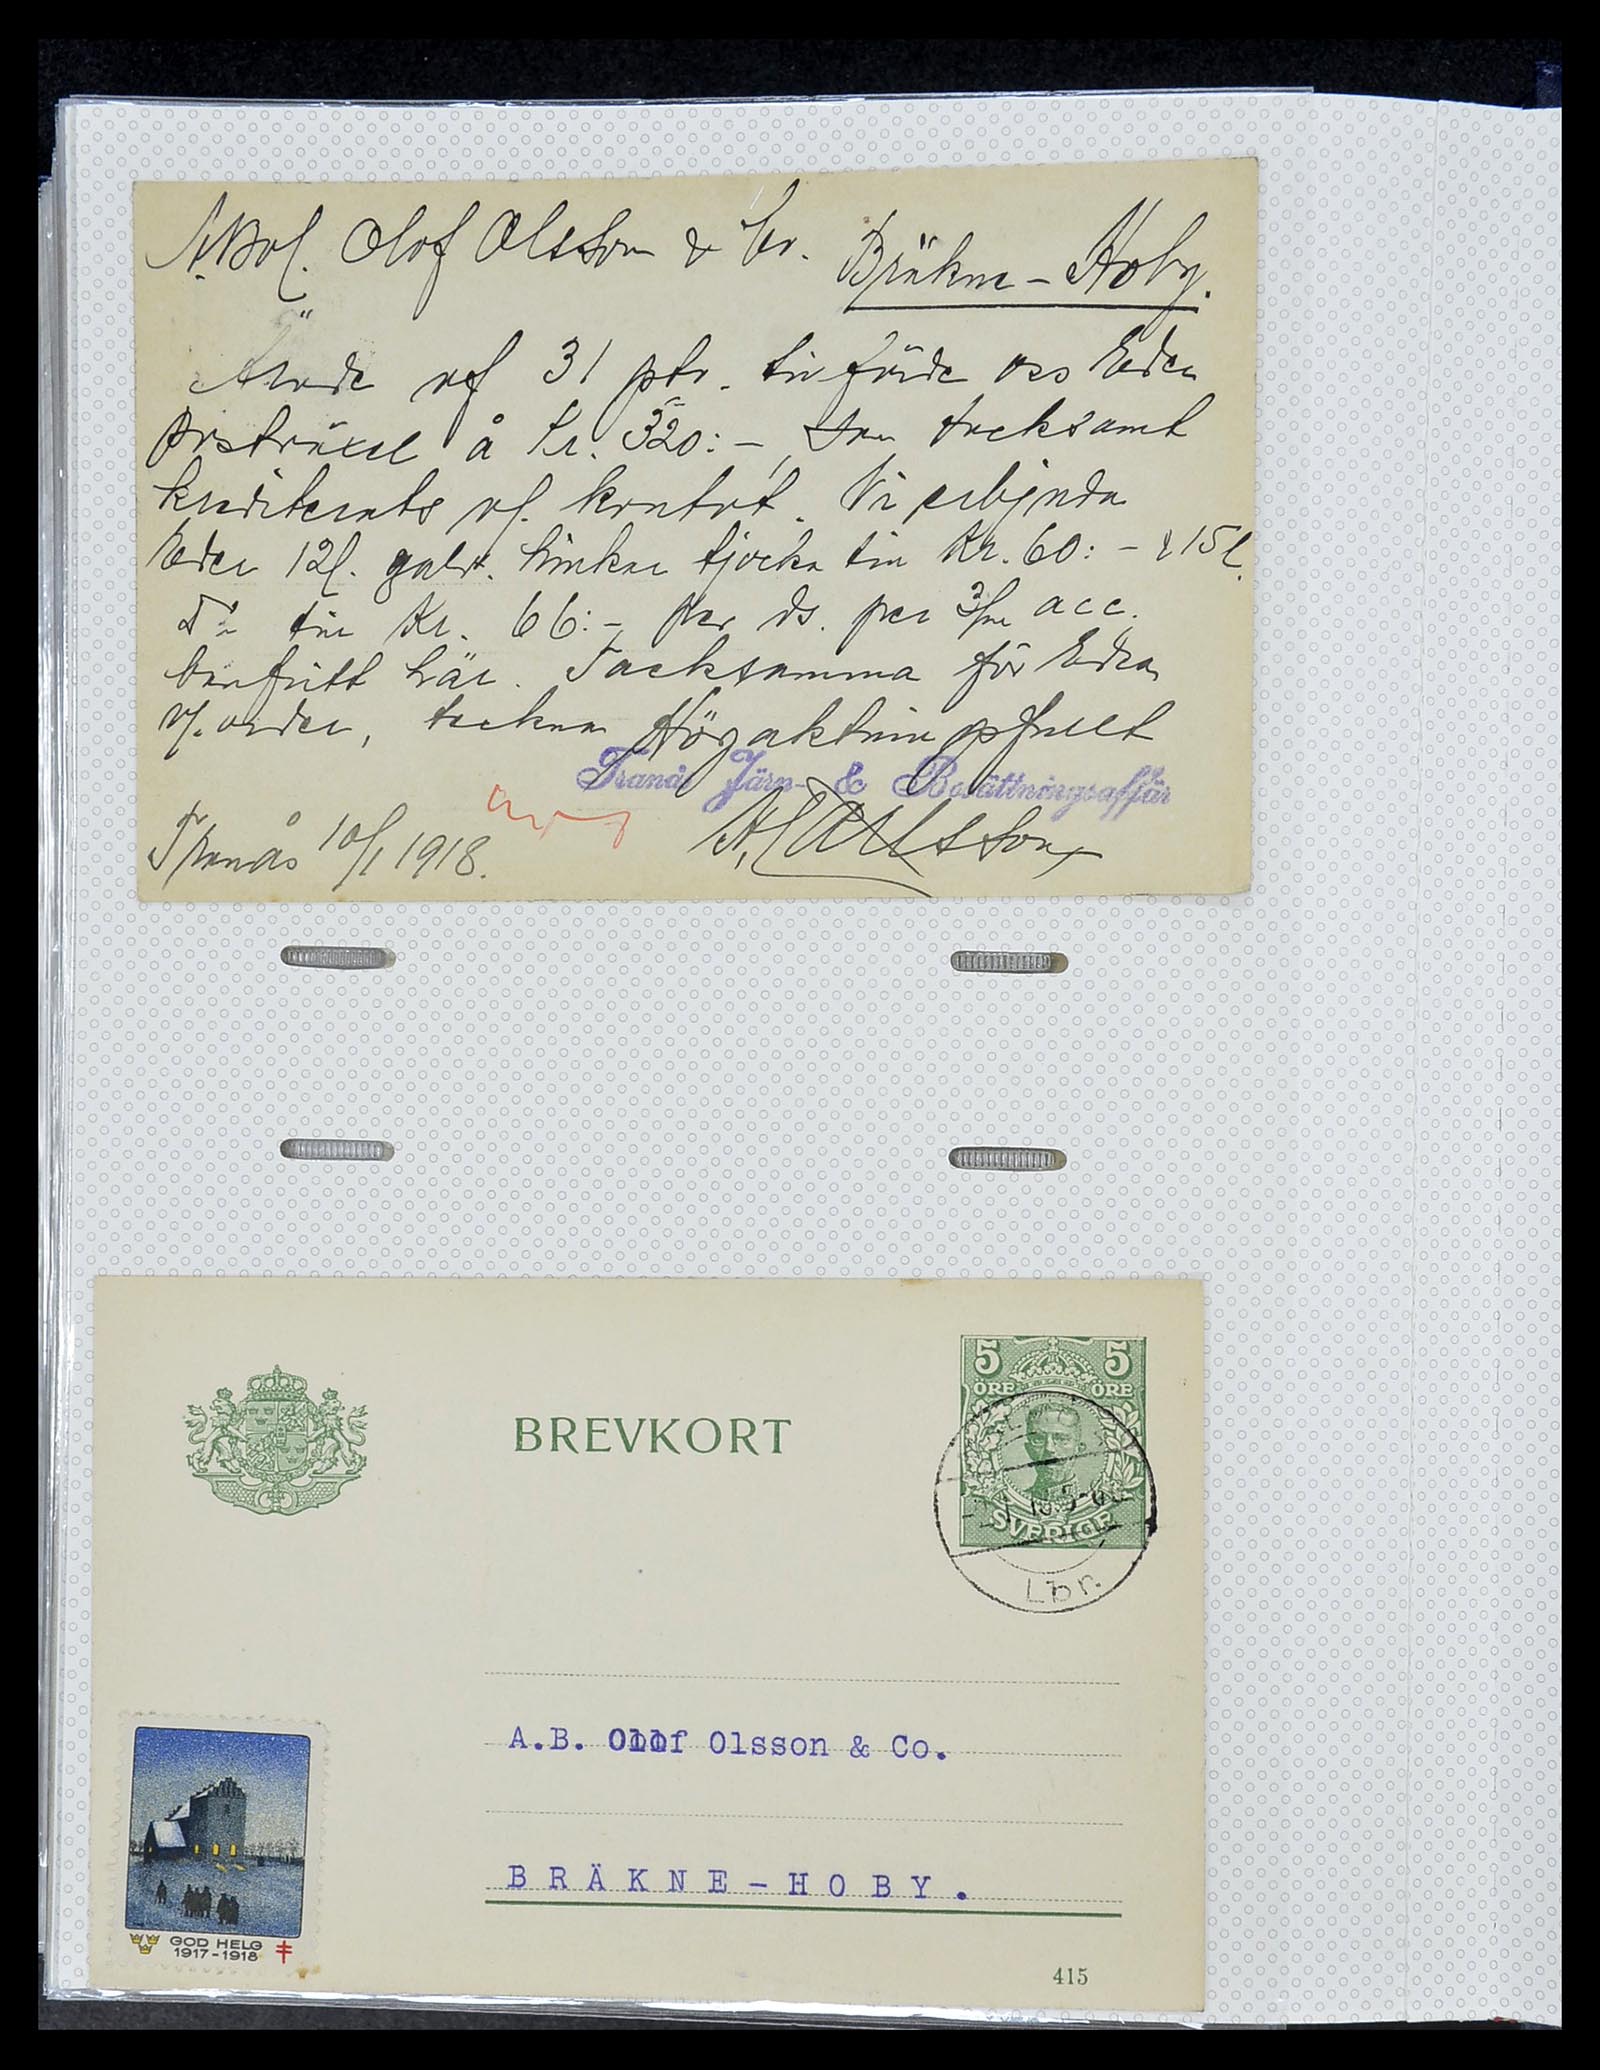 A.Bol. Olof Olsson & Co. Bräkne-Hoby.
Ärade af 31 ptr. tillförde oss Eder
postväxel å Kr. 320:-, som tacksamt
krediterats rf. kontot. Vi erbjuda
Eder 12 l. galv. hinkar tjocka till Kr. 60:- & 15 l.
Do till Kr. 66:- per ds. per 3/m acc.
banfritt här. Tacksamma för Edra
v. order, teckna Högaktningsfullt
Tranås Järn- & Bosättningsaffär
Tranås 10/1 1918.
BREVKORT
5 5
ÖRE ÖRE
SVERIGE
Lbr.
A.B. Olof Olsson & Co.
BRÄKNE-HOBY.
GOD HELG
1917-1918
415